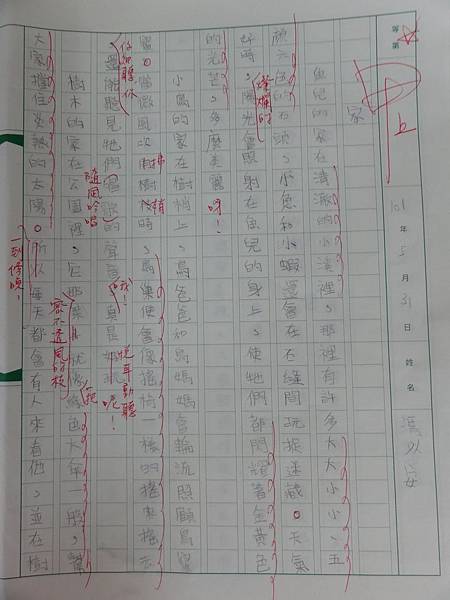 等第 甲上 101年5月31日 姓名
家
魚兒的家在清澈的小溪裡，那裡有許多大大小小、五
顏六色的石頭，小魚和小蝦還會在石縫間玩捉迷藏。天氣
好時，陽光會照射在魚兒的身上，使牠們都閃耀著金黃色
燦爛的
的光芒，多麼美麗呀！
小鳥的家在樹梢上，鳥爸爸和鳥媽媽會輪流照顧鳥
當微風吹拂樹梢時，鳥巢便會像搖椅一樣的搖來搖去
還能聽見牠們的聲音，真是
悅耳動聽呢！
隨風吟唱
樹木的家在公園裡，它那就像綠色大傘一般，幫
密不透風的枝
大家擋住炎熱的太陽。所以每天都會有人來看他，並在樹
一到傍晚，